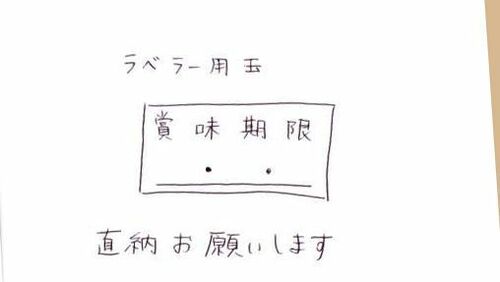 ラベラー用玉
賞味期限
・ ・
直納お願いします